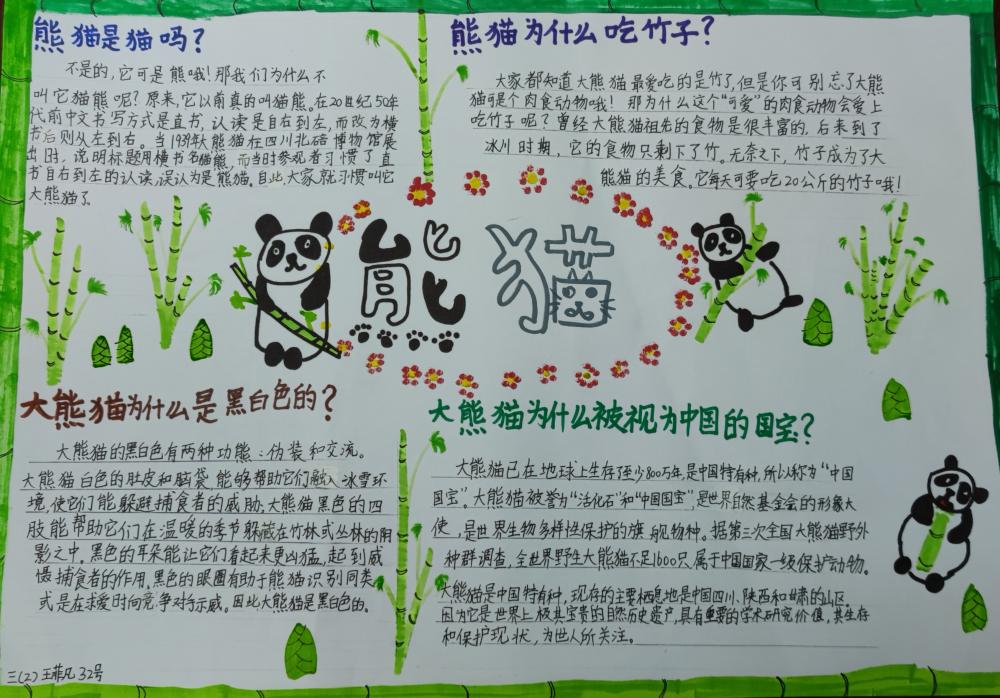 熊猫是猫吗？
不是的，它可是熊哦！那我们为什么不
叫它猫熊呢？原来，它以前真的叫猫熊。在20世纪50年
代前中文书写方式是直书，认读是自右到左，而改为横
书后则从左到右。当1939年大熊猫在四川北碚博物馆展
出时，说明标题用横书名猫熊，而当时参观者习惯了直
书自右到左的认读，误认为是熊猫。自此，大家就习惯叫它
大熊猫了
熊猫为什么吃竹子？
大家都知道大熊猫最爱吃的是竹了，但是你可别忘了大熊
猫可是个肉食动物哦！那为什么这个“可爱”的肉食动物会爱上
吃竹子呢？曾经大熊猫祖先的食物是很丰富的，后来到了
冰川时期，它的食物只剩下了竹。无奈之下，竹子成为了大
熊猫的美食。它每天可要吃20公斤的竹子哦！
熊猫
大熊猫为什么是黑白色的？
大熊猫的黑白色有两种功能：伪装和交流。
大熊猫白色的肚皮和脑袋能够帮助它们融入冰雪环
境，使它们能躲避捕食者的威胁；大熊猫黑色的四
肢能帮助它们在温暖的季节躲藏在竹林或丛林的阴
影之中。黑色的耳朵能让它们看起来更凶猛，起到威
慑捕食者的作用。黑色的眼圈有助于熊猫识别同类
或是在求爱时向竞争对手示威。因此大熊猫是黑白色的。
大熊猫为什么被视为中国的国宝？
大熊猫已在地球上生存至少800万年，是中国特有种，所以称为“中国
国宝”。大熊猫被誉为“活化石”和“中国国宝”，是世界自然基金会的形象大
使，是世界生物多样性保护的旗舰物种。据第三次全国大熊猫野外
种群调查，全世界野生大熊猫不足1600只，属于中国国家一级保护动物。
大熊猫是中国特有种，现存的主要栖息地是中国四川、陕西和甘肃的山区
因为它是世界上极其宝贵的自然历史遗产，具有重要的学术研究价值，其生存
和保护现状，为世人所关注。
三（2）王菲凡 32号